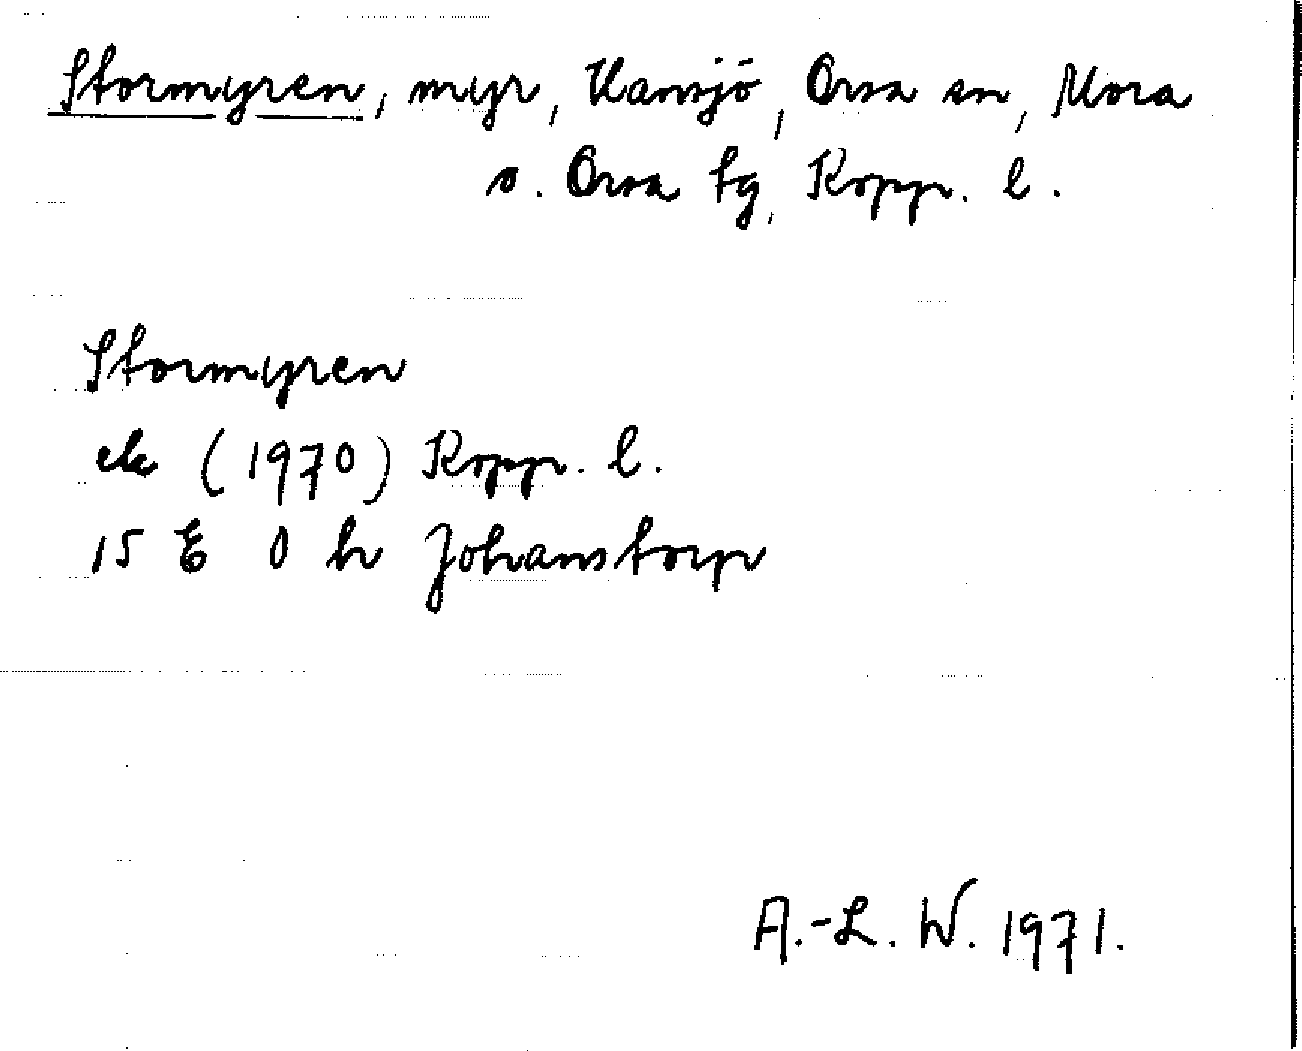 Stormyren, myr, Hansjö, Orsa sn, Mora
o. Orsa tg, Kopp. l.
Stormyren
ek (1970) Kopp. l.
15 E 0 h Johanstorp
A.-L. W. 1971.